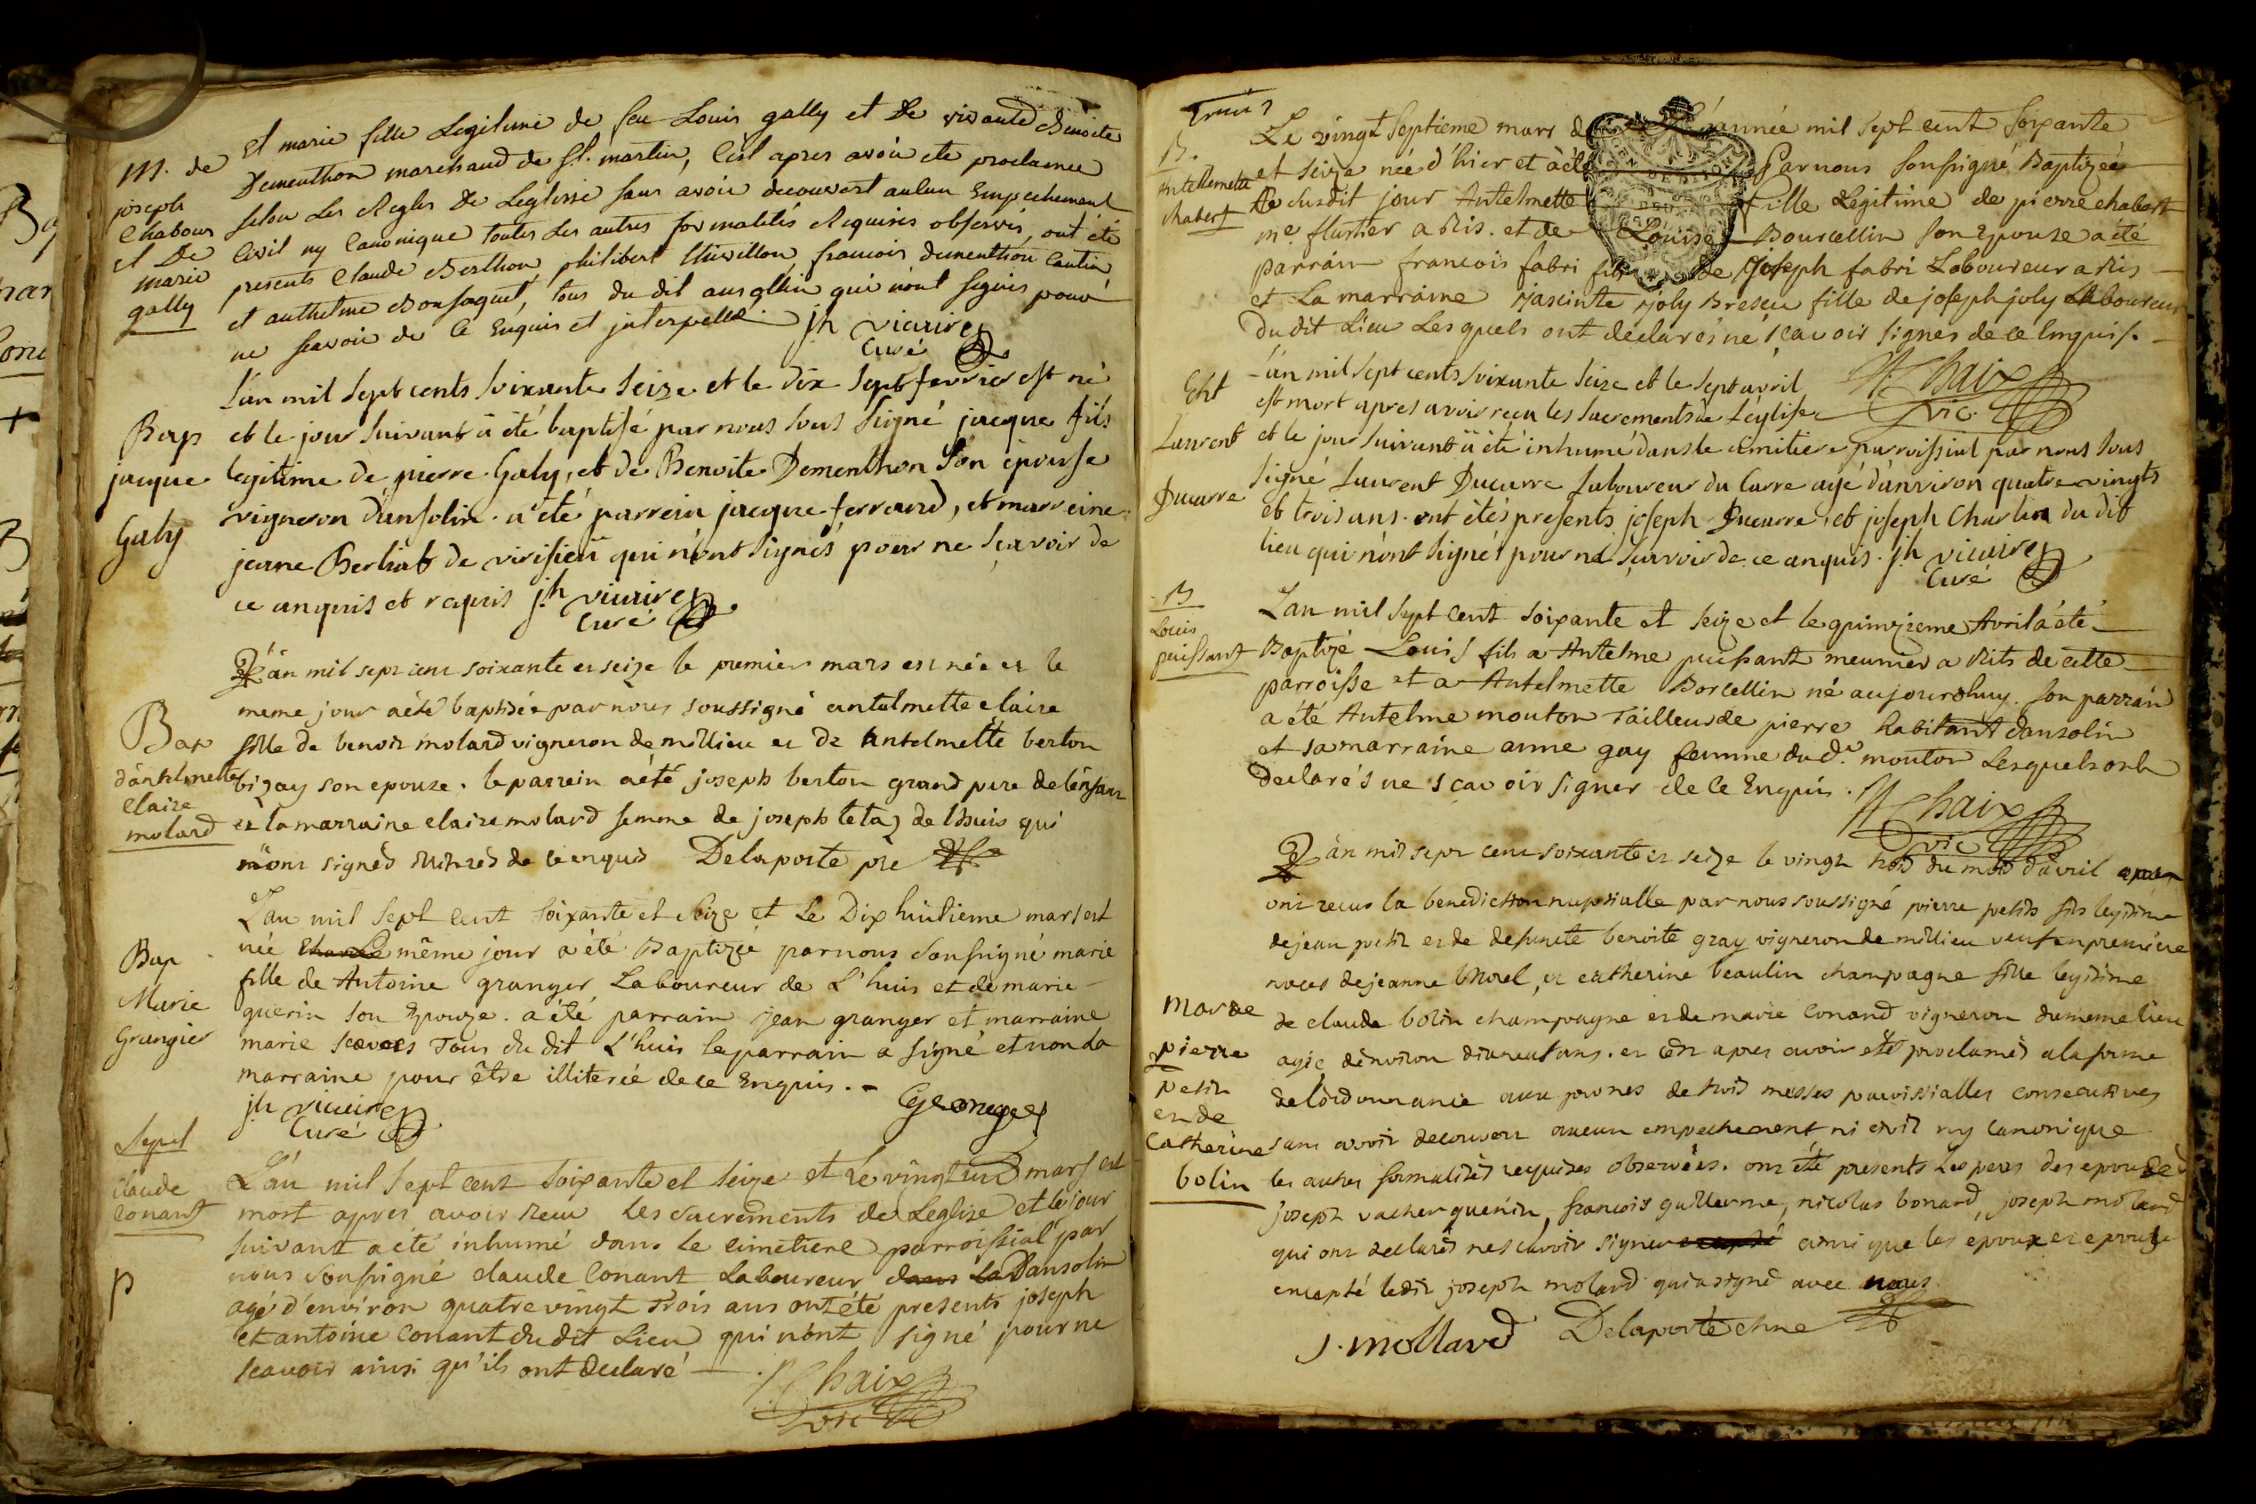 M. de
joseph
Chabour
et De
marie
gally
et marie fille Legitime de feu Louis gally et De vivante Benoite
Dementhon marchand de St. martin, C'est apres avoir ete proclamee
selon Les Regles De L'eglise sans avoir decouvert aulun Empechement
Civil ny Canonique toutes Les autres formalités Requises observés, ont été
presents Claude Berthon, philibert thivillon, francois dementhon Cantin
et anthelme Bonfaquet, tous du dit qui n'ont signés pour
ne scavoir de Ce Enquis et interpellé. jh vicaire
Curé
Bap
jacque
Galy
L'an mil sept cents soixante seize et le dix sept fevrier est né
et le jour suivant à été baptisé par nous sous signé jacque fils
legitime de pierre Galy, et de Benoite Dementhon son épouse
vigneron d'ansolin. a été parrein jacque ferrand, et marreine
jeane Berliat de virisieu qui n'ont signés pour ne sçavoir de
ce anquis et requis jh vicaire
Curé
Bap
d'antelmette
claire
molard
L'an mil sept cent soixante et seize le premier mars est née et le
meme jour a été baptisée par nous soussigné antelmette claire
fille de benoit molard vigneron de millieu et de Antelmette berton
bigay son epouze. le parrein a été joseph berton grand pere de l'enfant
et la marraine claire molard femme de joseph tetaz de Lhuis qui
n'ont signés de ce enquis Delaporte pre
Bap
Marie
Grangier
L'an mil sept cent soixante et seize et Le Dix huitieme mars est
née même jour a été Baptizée par nous sousigné marie
fille de Antoine granger Laboureur de L'huis et de marie
guerin son Epouze. a été parrain jean granger et marraine
marie Tous du dit L'huis le parrain a signé et non La
marraine pour être illiterée de ce Enquis.
jh vicaire
Curé
Sepul
claude
Conant
p
L'an mil sept cent soixante et seize et Le vingt un mars est
mort apres avoir receu Les sacrements de Leglize et le jour
suivant a été inhumé dans Le cimetiere parroissial par
nous sousigné claude Conant Laboureur dans La Dansolin
agé d'environ quatre vingt Trois ans ont été presents joseph
et antoine Conant du dit Lieu qui n'ont signé pour ne
scavoir ainsi qu'ils ont declaré
Chaix
vic
B.
Antellemette
chabert
Le vingt septieme mars L'année mil sept cent soixante
et seize née d'hier et à été Par nous sousigné Baptizée
Le susdit jour Antelmette fille Légitime de pierre chabert
me. flurtier a Ris. et de Louise Bourcellin son Epouze a été
parrain francois fabri fils de joseph fabri Laboureur a Ris
et La marraine jacinte joly Bresen fille de joseph joly Laboureur
du dit Lieu Lesquels ont déclarés ne sçavoir signer de ce Enquis.
Chaix
vic
Ent
Laurent
Ducarre
L'an mil sept cents soixante seize et le sept avril
est mort apres avoir reçu les sacrements de l'eglise
et le jour suivant a été inhumé dans le cemitiere parroissial par nous sous
signé Laurent Ducarre laboureur du Carre agé d'anviron quatre vingts
et trois ans. ont étés presents joseph Ducarre, et joseph Charlin du dit
lieu qui n'ont signés pour ne sçavoir de ce anquis. jh vicaire
Curé
B
Louis
puissant
L'an mil sept cent soixante et seize et le quinzieme Avril a été
Baptizé Louis fils a Antelme puissant meunier a Rits de cette
parroisse et a Antelmette Borcellin né aujourdhuy. son parrain
a été Antelme mouton Tailleur de pierre habitant dansolin
et sa marraine anne gay femme du d. mouton Lesquels ont
declarés ne sçavoir signer de ce Enquis.
Chaix
vic
Marge
pierre
petit
et de
Catherine
bolin
L'an mil sept cent soixante et seize le vingt trois du mois d'avril
ont recus la benediction nuptialle par nous soussigné pierre petit fils legitime
de jean petit et de defuncte benoite gray vigneron de millieu veuf en premiere
noces de jeanne Morel, et catherine beaulin champagne fille legitime
de claude bolin champagne et de marie Conand vigneron du meme lieu
agée d'environ dixneuf ans. et c'est apres avoir été proclamés a la forme
de l'ordonnance aux prones de trois messes paroissialles consecutives
sans avoir decouvert aucun empechement ni civil ny canonique
les autres formalités requises observées. ont été presents Les peres des epouzés
joseph vacher guenin, francois guillerme, nicolas bonard, joseph molard
qui ont declarés ne scavoir signer ainsi que les epoux et epouze
excepté ledit joseph molard qui a signé avec nous
J. Mollard Delaporte